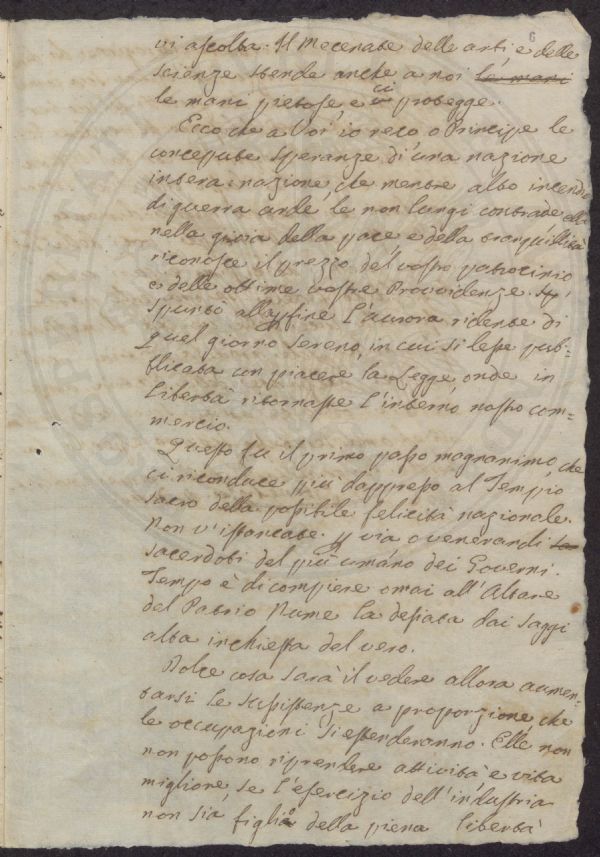 6
vi ascolta. Il Mecenate delle arti, e delle
scienze stende anche a noi le mani
le mani pietose, e ci protegge.
Ecco che a Voi io reco o Principe le
concepute speranze di una nazione
intera: nazione, che mentre alto incendio
di guerra arde le non lungi contrade, ella
nella gioia della pace, e della tranquillità
riconosce il prezzo del vostro patrocinio,
e delle ottime vostre Providenze.
Spuntò alla fine l'aurora ridente di
quel giorno sereno, in cui si lesse pub=
blicata con piacere la Legge, onde in
libertà ritornasse l'interno nostro com=
mercio.
Questo fu il primo passo magnanimo, che
ci riconduce più dappresso al Tempio
sacro della possibile felicità nazionale.
Non v'istancate. via o venerandi
sacerdoti del più umano dei Governi.
Tempo è di compiere omai all'Altare
del Patrio Nume la desiata dai saggi
alta inchiesta del vero.
Dolce cosa sarà il vedere allora aumen=
tarsi le sussistenze a proporzione, che
le occupazioni si estenderanno. Elle non
non possono riprendere attività e vita
migliore, se l'esercizio dell'industria
non sia figlio della piena libertà